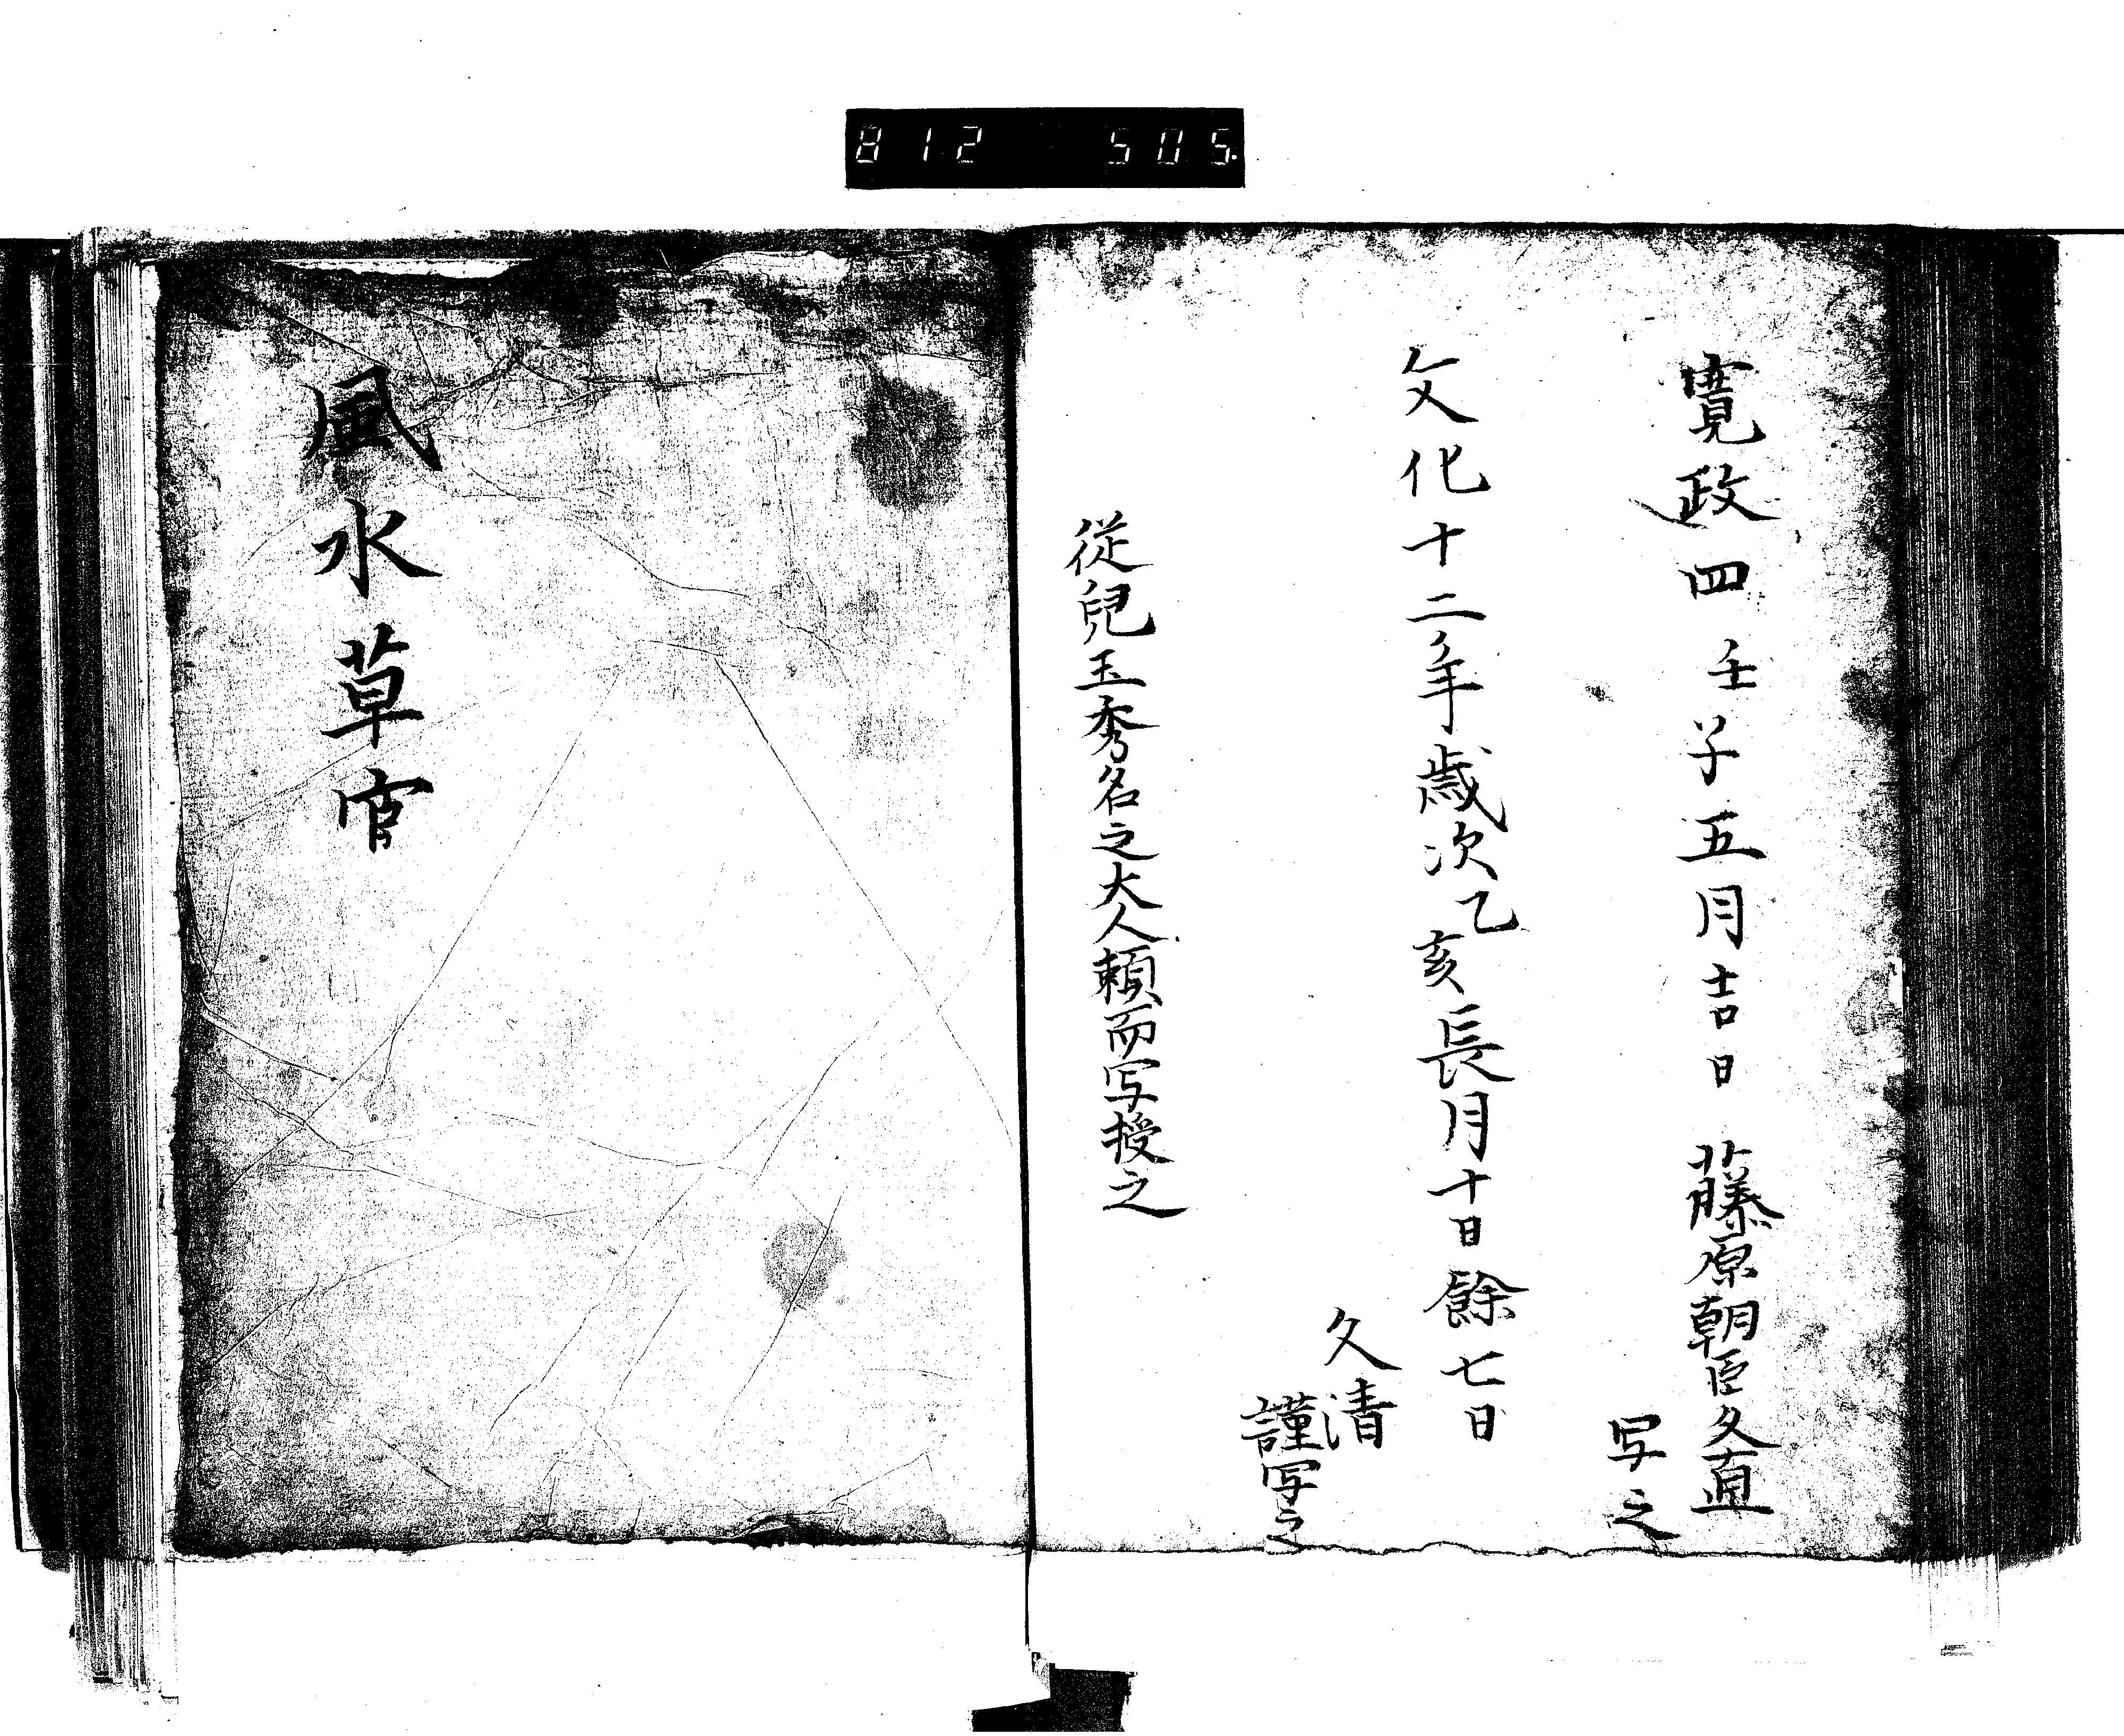 812 505.
寛政四壬子五月吉日 藤原朝臣久直
写之
文化十二年歳次乙亥長月十日餘七日
久清
謹写之
従兒玉秀名之大人頼而写授之
風水草 官